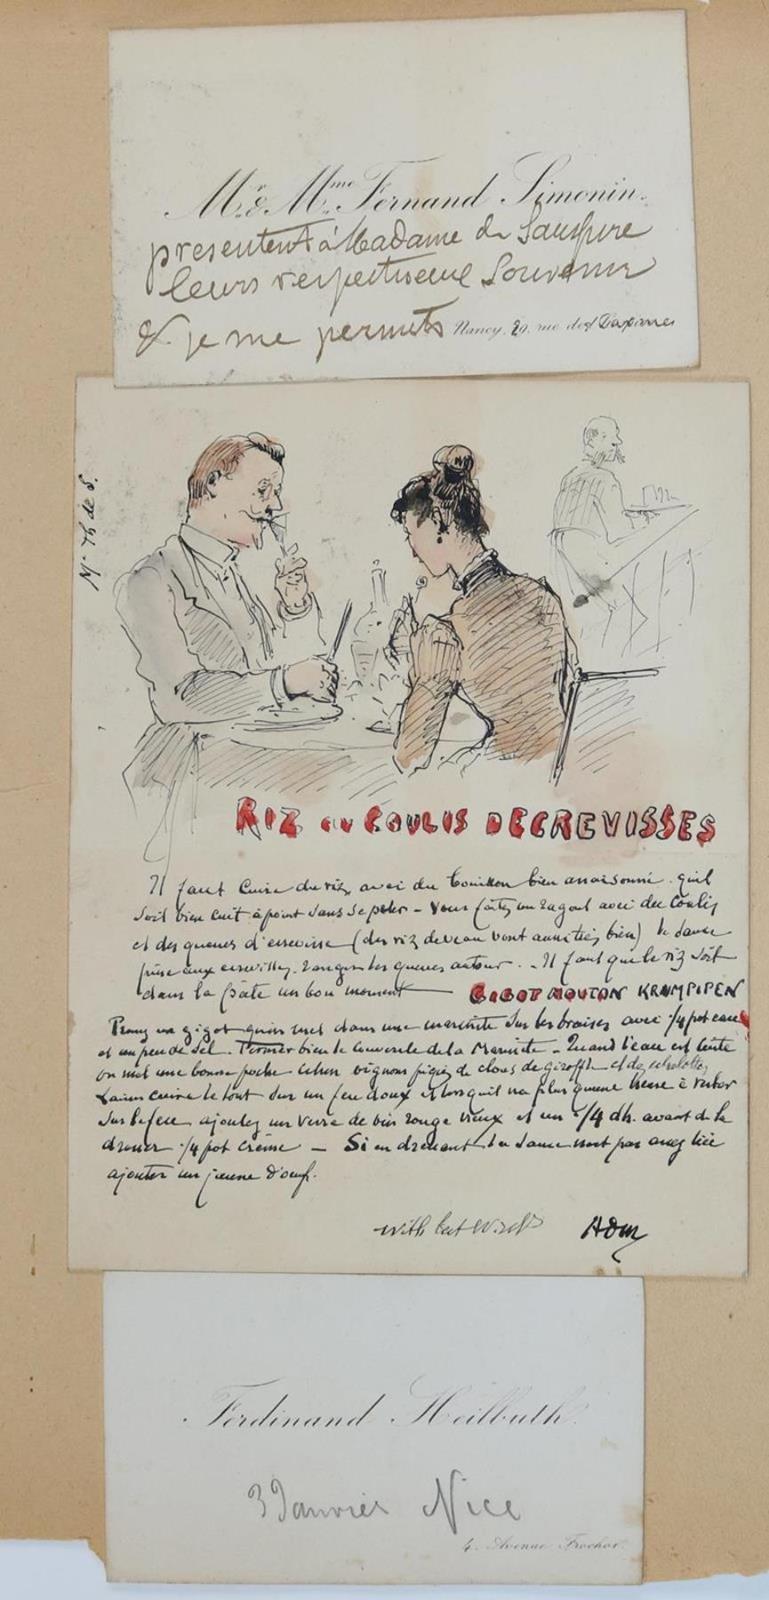 Mr. & Mme. Fernand Simonin.
présentent à Madame de
leurs respectueux Souvenir
& je me permets Nancy, 29, rue des
No Th de S.
RIZ au COULIS DECREVISSES
Il faut cuire du riz avec du bouillon bien assaisonné. qu'il
soit bien cuit à point sans se peler - Vous faites un ragout avec des Coulis
et des queues d'ecrevisse (des riz de veau vont aussi très bien) la sauce
prise aux ecrevisses, ranger les queues autour. - Il faut que le riz soit
dans la un bon moment
GIGOT MOUTON KRAMPIPEN
Prenez un gigot qu'on met dans une marmite sur les braises avec 1/4 pot eau
et un peu de sel. Fermer bien le couvercle de la Marmite - Quand l'eau est
on met une bonne oignons piqués de clous de giroffle et de echalottes
Laisser cuire le tout sur un feu doux et lorsqu'il n'a plus qu'une heure à rester
sur le feu ajoutez un verre de vin rouge vieux et un 1/4 dh. avant de le
dresser 1/4 pot crême - Si en dressant la sauce n'est pas assez liée
ajouter un jaune d'oeuf.
with best
Ferdinand Heilbuth.
3 Janvier Nice
4. Avenue Frochot